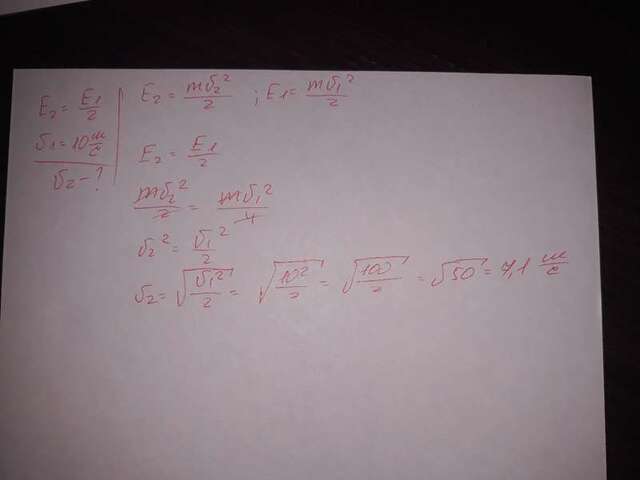 E₂ = E₁/2
υ₁ = 10 м/с
υ₂ - ?
E₂ = mυ₂²/2 ; E₁ = mυ₁²/2
E₂ = E₁/2
mυ₂²/2 = mυ₁²/4
υ₂² = υ₁²/2
υ₂ = √(υ₁²/2) = √(10²/2) = √(100/2) = √50 = 7,1 м/с